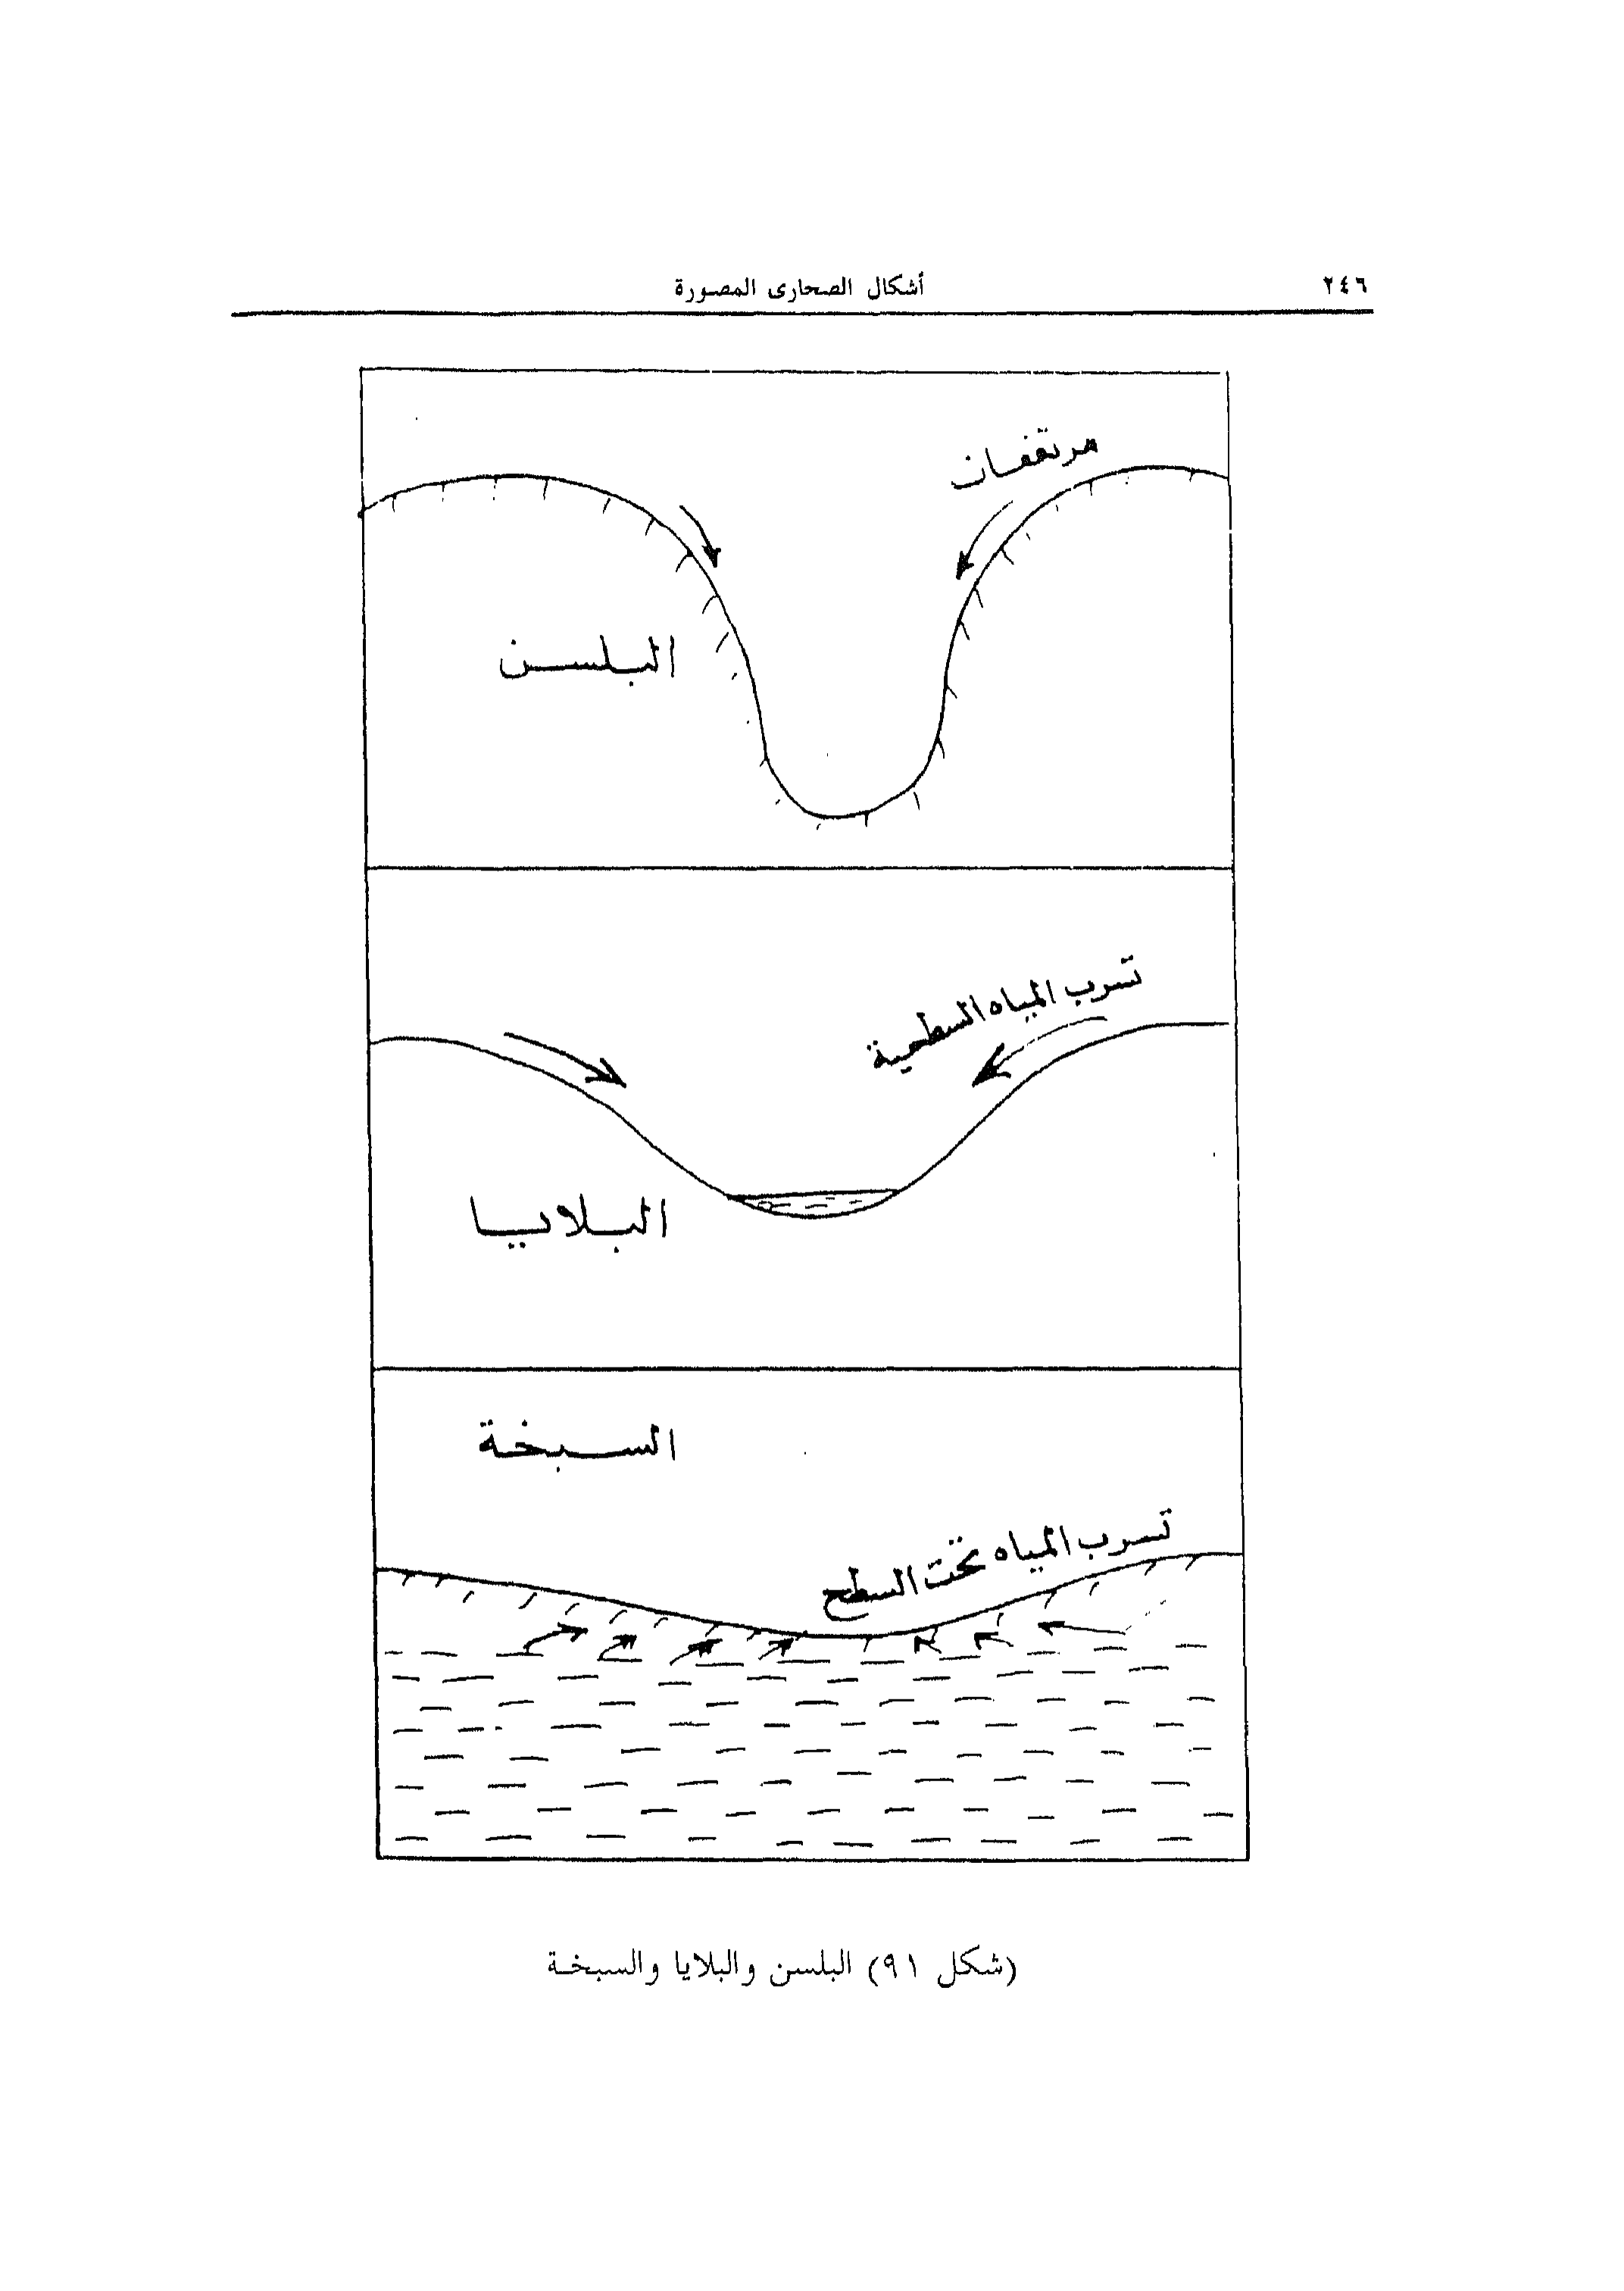 ٢٤٦
أشكال الصحارى المصورة
مرتفعات
البلسن
تسرب المياه السطحية
البلايا
السبخة
تسرب المياه تحت السطح
(شكل ٩١) البلسن والبلايا والسبخة